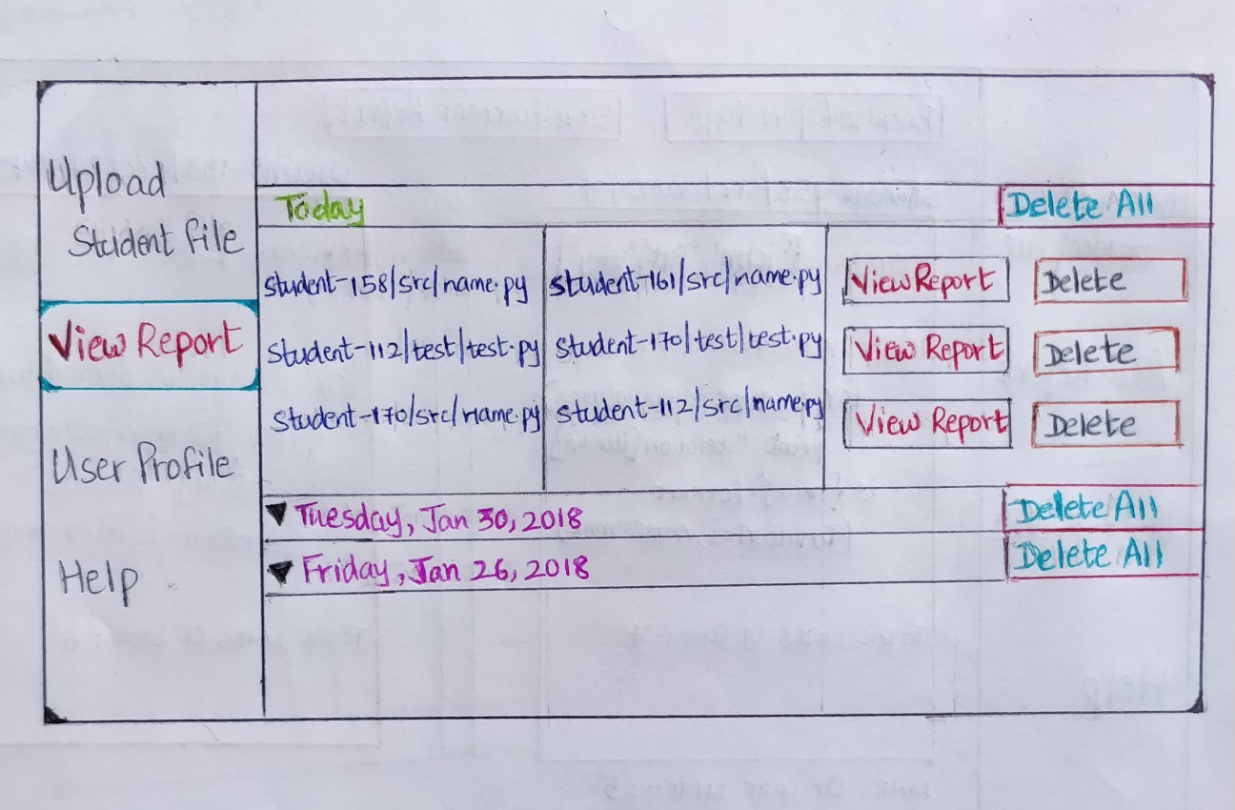 Upload
Student file
View Report
User Profile
Help
Today
Delete All
student-158/src/name.py
student-161/src/name.py
View Report
Delete
student-112/test/test.py
student-170/test/test.py
View Report
Delete
student-170/src/name.py
student-112/src/name.py
View Report
Delete
▼ Tuesday, Jan 30, 2018
Delete All
▼ Friday, Jan 26, 2018
Delete All